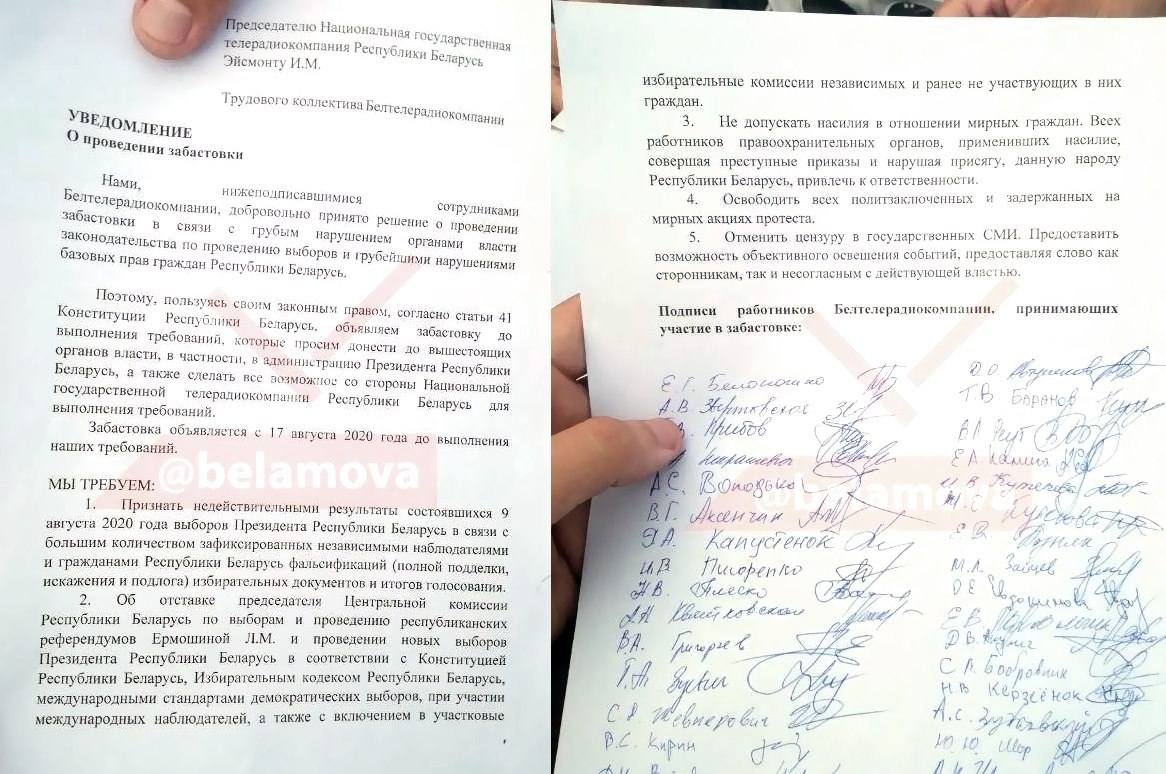 Председателю Национальная государственная
телерадиокомпания Республики Беларусь
Эйсмонту И.М.
Трудового коллектива Белтелерадиокомпании
УВЕДОМЛЕНИЕ
О проведении забастовки
Нами, нижеподписавшимися сотрудниками
Белтелерадиокомпании, добровольно принято решение о проведении
забастовки в связи с грубым нарушением органами власти
законодательства по проведению выборов и грубейшими нарушениями
базовых прав граждан Республики Беларусь.
Поэтому, пользуясь своим законным правом, согласно статьи 41
Конституции Республики Беларусь, объявляем забастовку до
выполнения требований, которые просим донести до вышестоящих
органов власти, в частности, в администрацию Президента Республики
Беларусь, а также сделать все возможное со стороны Национальной
государственной телерадиокомпании Республики Беларусь для
выполнения требований.
Забастовка объявляется с 17 августа 2020 года до выполнения
наших требований.
@belamova
МЫ ТРЕБУЕМ:
1. Признать недействительными результаты состоявшихся 9
августа 2020 года выборов Президента Республики Беларусь в связи с
большим количеством зафиксированных независимыми наблюдателями
и гражданами Республики Беларусь фальсификаций (полной подделки,
искажения и подлога) избирательных документов и итогов голосования.
2. Об отставке председателя Центральной комиссии
Республики Беларусь по выборам и проведению республиканских
референдумов Ермошиной Л.М. и проведении новых выборов
Президента Республики Беларусь в соответствии с Конституцией
Республики Беларусь, Избирательным кодексом Республики Беларусь,
международными стандартами демократических выборов, при участии
международных наблюдателей, а также с включением в участковые
избирательные комиссии независимых и ранее не участвующих в них
граждан.
3. Не допускать насилия в отношении мирных граждан. Всех
работников правоохранительных органов, применивших насилие,
совершая преступные приказы и нарушая присягу, данную народу
Республики Беларусь, привлечь к ответственности.
4. Освободить всех политзаключенных и задержанных на
мирных акциях протеста.
5. Отменить цензуру в государственных СМИ. Предоставить
возможность объективного освещения событий, предоставляя слово как
сторонникам, так и несогласным с действующей властью.
Подписи работников Белтелерадиокомпании, принимающих
участие в забастовке:
Е.Г.
А.В.
Грибов
А.С. Володько
В.Г. Аксенчик
Я.А. Капустенок
И.В. Писаренко
Н.В. Плеско
А.Н. Квятковская
В.А. Григорьев
Т.А.
С.А.
В.С. Кирин
Д.О.
Т.В. Баранов
В.Л. Реут
Е.А. Калина
@belamova
Е.В.
М.Л. Зайцев
Д.Е.
Е.В.
Д.В.
С.Л. Бобровник
Н.В. Керзёнок
А.С.
Ю.Ю. Шор